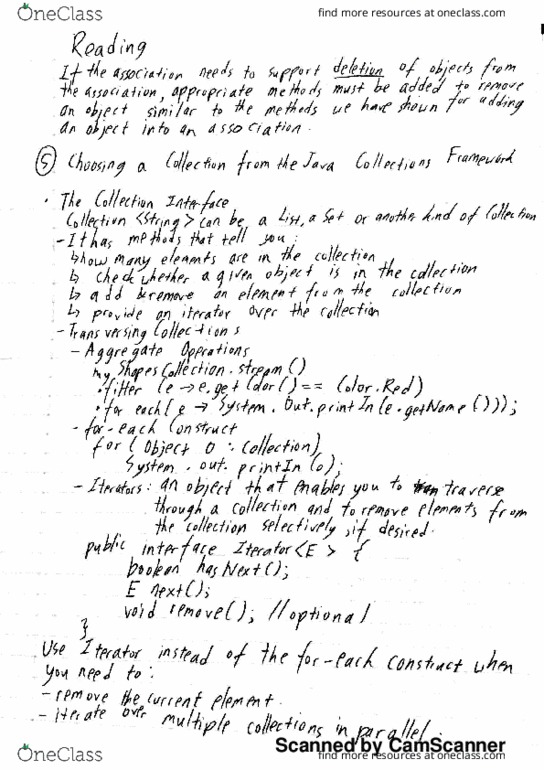 OneClass
find more resources at oneclass.com
Reading
If the association needs to support deletion of objects from
the association, appropriate methods must be added to remove
an object similar to the methods we have shown for adding
an object into an association.
⑤ Choosing a Collection from the Java Collections Framework
• The Collection Interface
Collection <String> can be a List, a Set or another kind of Collection
- It has methods that tell you:
↳ how many elements are in the collection
↳ check whether a given object is in the collection
↳ add & remove an element from the collection
↳ provide an iterator over the collection
- Transversing Collections
- Aggregate Operations
myShapesCollection.stream()
.filter (e → e.getColor() == Color.Red)
.for each(e → System.Out.printIn(e.getName()));
- for-each Construct
for (Object O : Collection)
System.out.printIn(o);
- Iterators: an object that enables you to traverse
through a collection and to remove elements from
the collection selectively, if desired.
public interface Iterator<E> {
boolean hasNext();
E next();
void remove(); //optional
}
Use Iterator instead of the for-each construct when
you need to:
- remove the current element.
- iterate over multiple collections in parallel.
Scanned by CamScanner
OneClass
find more resources at oneclass.com